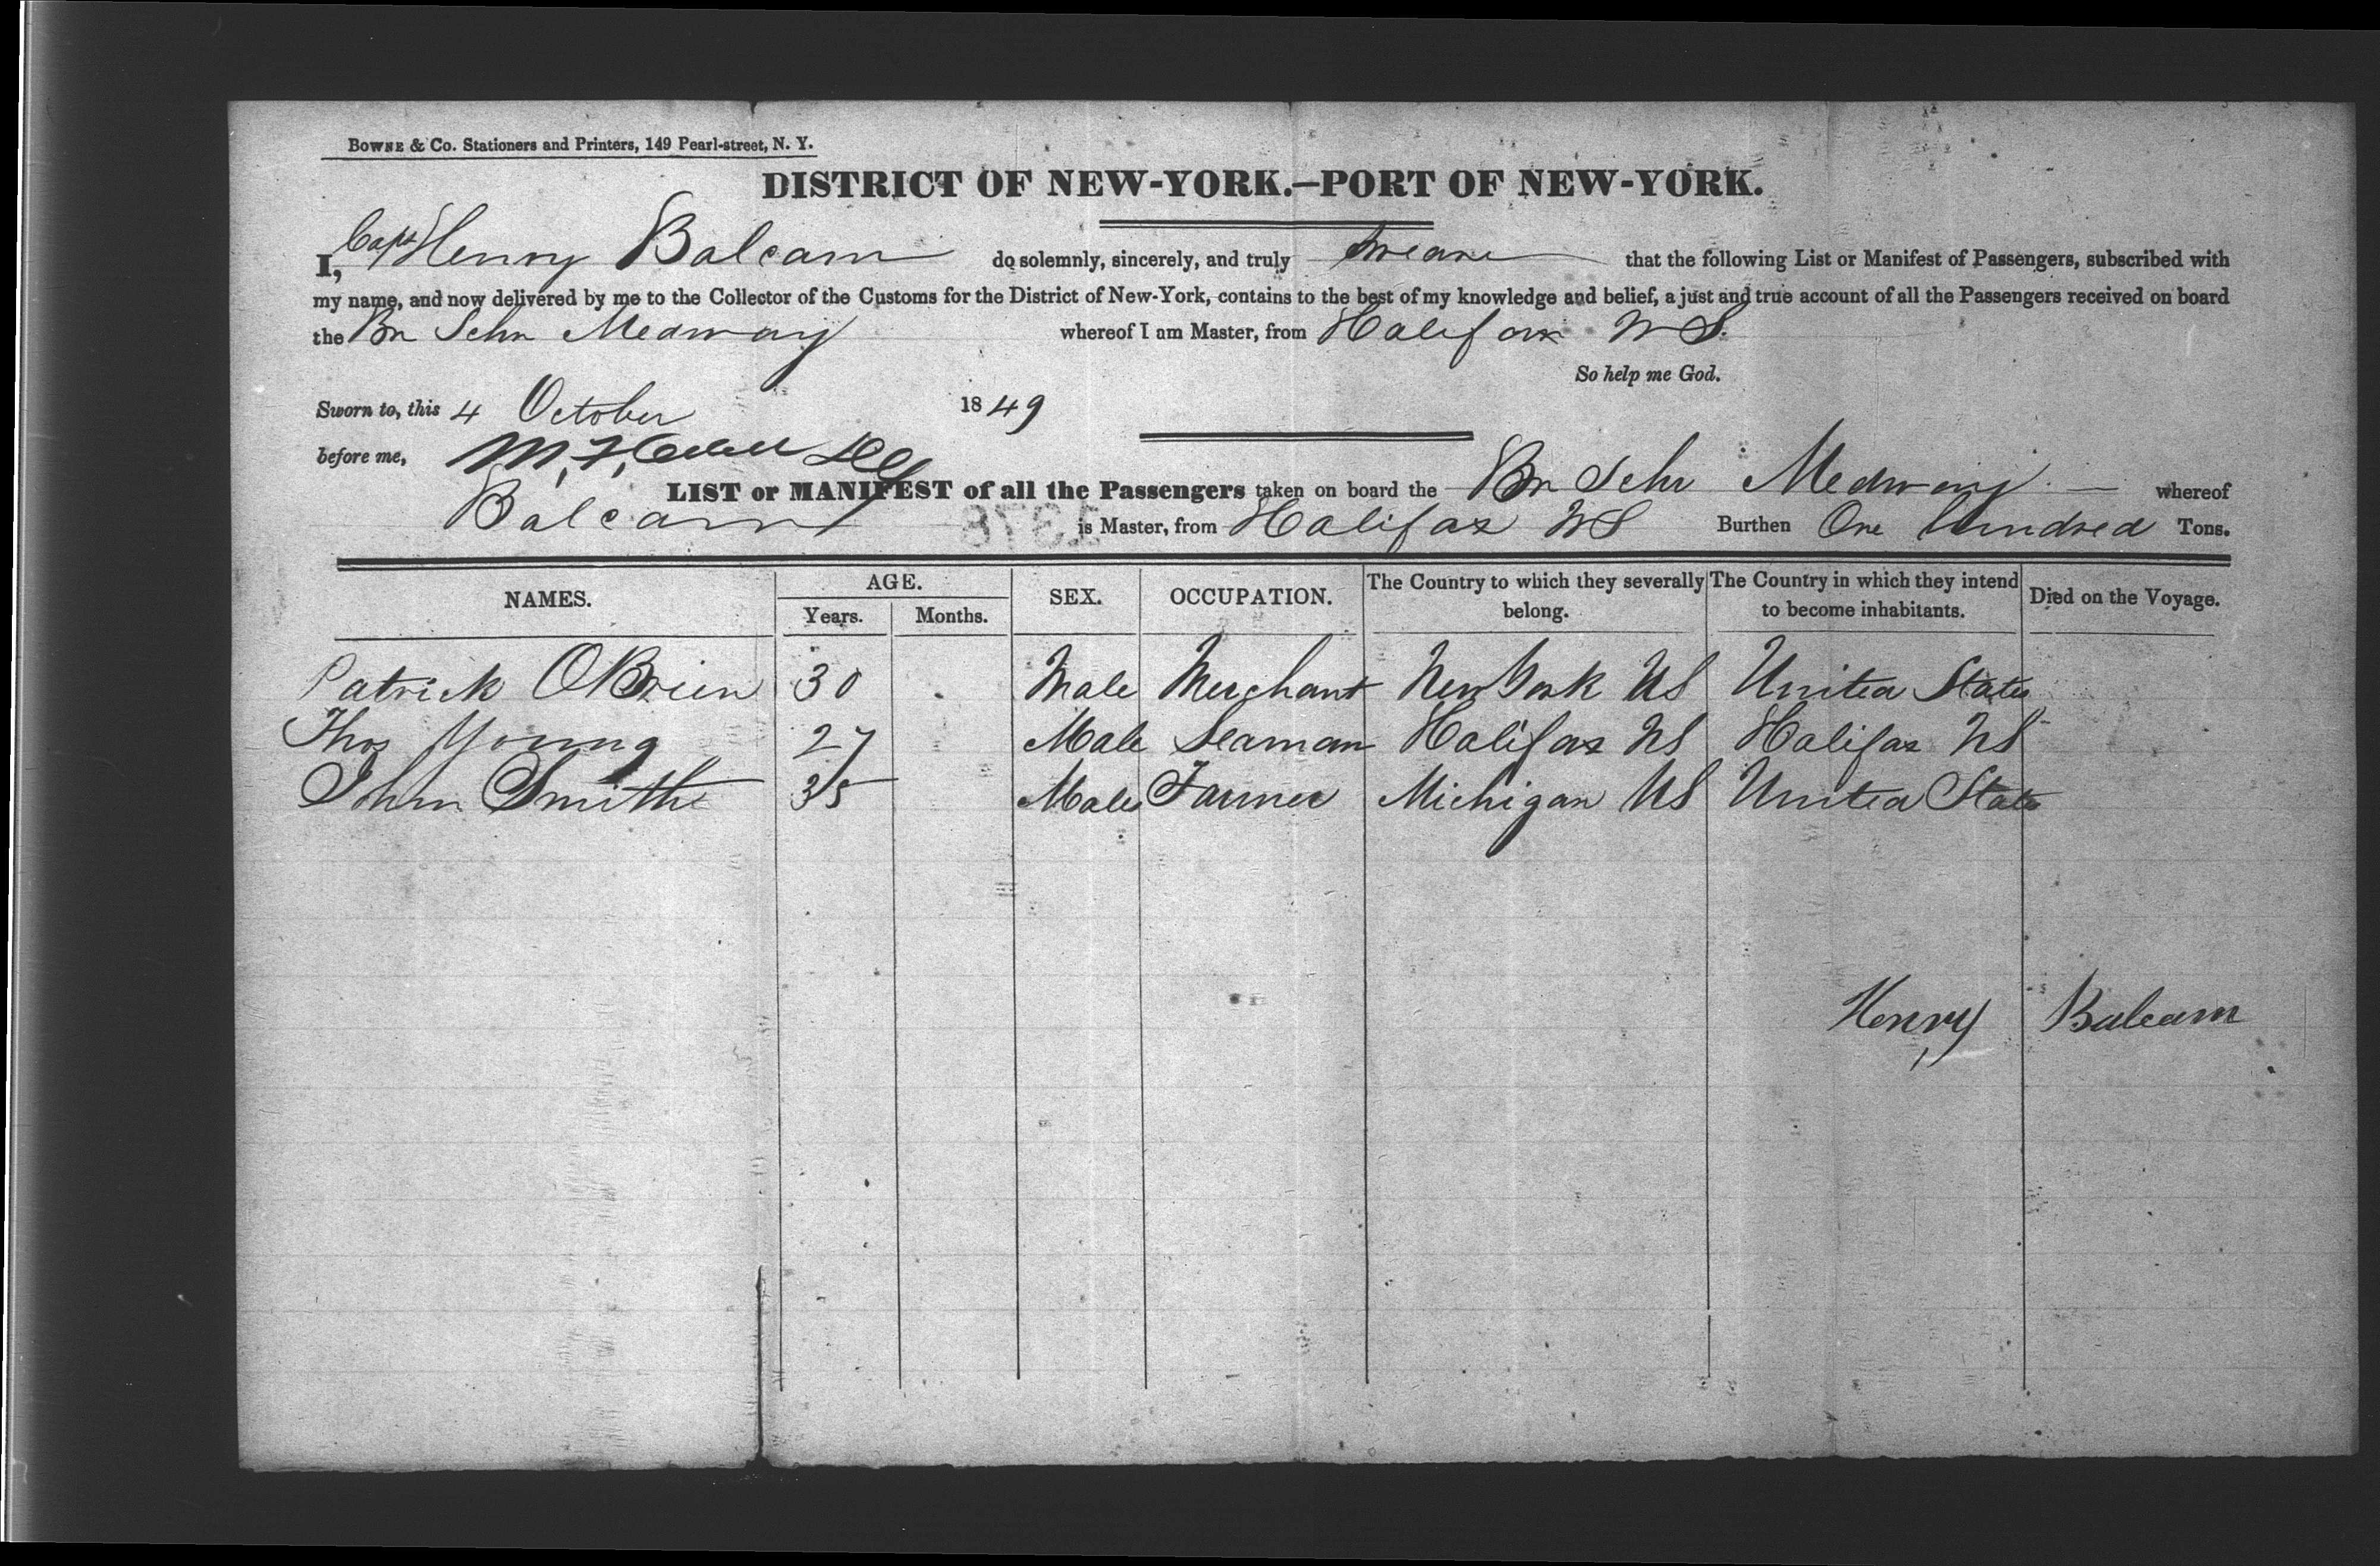 BOWNE & Co. Stationers and Printers, 149 Pearl-street, N. Y.
DISTRICT OF NEW-YORK.—PORT OF NEW-YORK.
I, Capt Henry Balcam do solemnly, sincerely, and truly swear that the following List or Manifest of Passengers, subscribed with
my name, and now delivered by me to the Collector of the Customs for the District of New-York, contains to the best of my knowledge and belief, a just and true account of all the Passengers received on board
the Br Schr Medway whereof I am Master, from Halifax NS.
So help me God.
Sworn to, this 4 October 1849
before me,
LIST or MANIFEST of all the Passengers taken on board the Br Schr Medway whereof
Balcam is Master, from Halifax NS Burthen One hundred Tons.
NAMES. AGE. SEX. OCCUPATION. The Country to which they severally belong. The Country in which they intend to become inhabitants. Died on the Voyage.
Years. Months.
Patrick OBrien 30 Male Merchant New York US United States
Thos Young 27 Male Seaman Halifax NS Halifax NS
John Smith 35 Male Farmer Michigan US United States
Henry Balcam